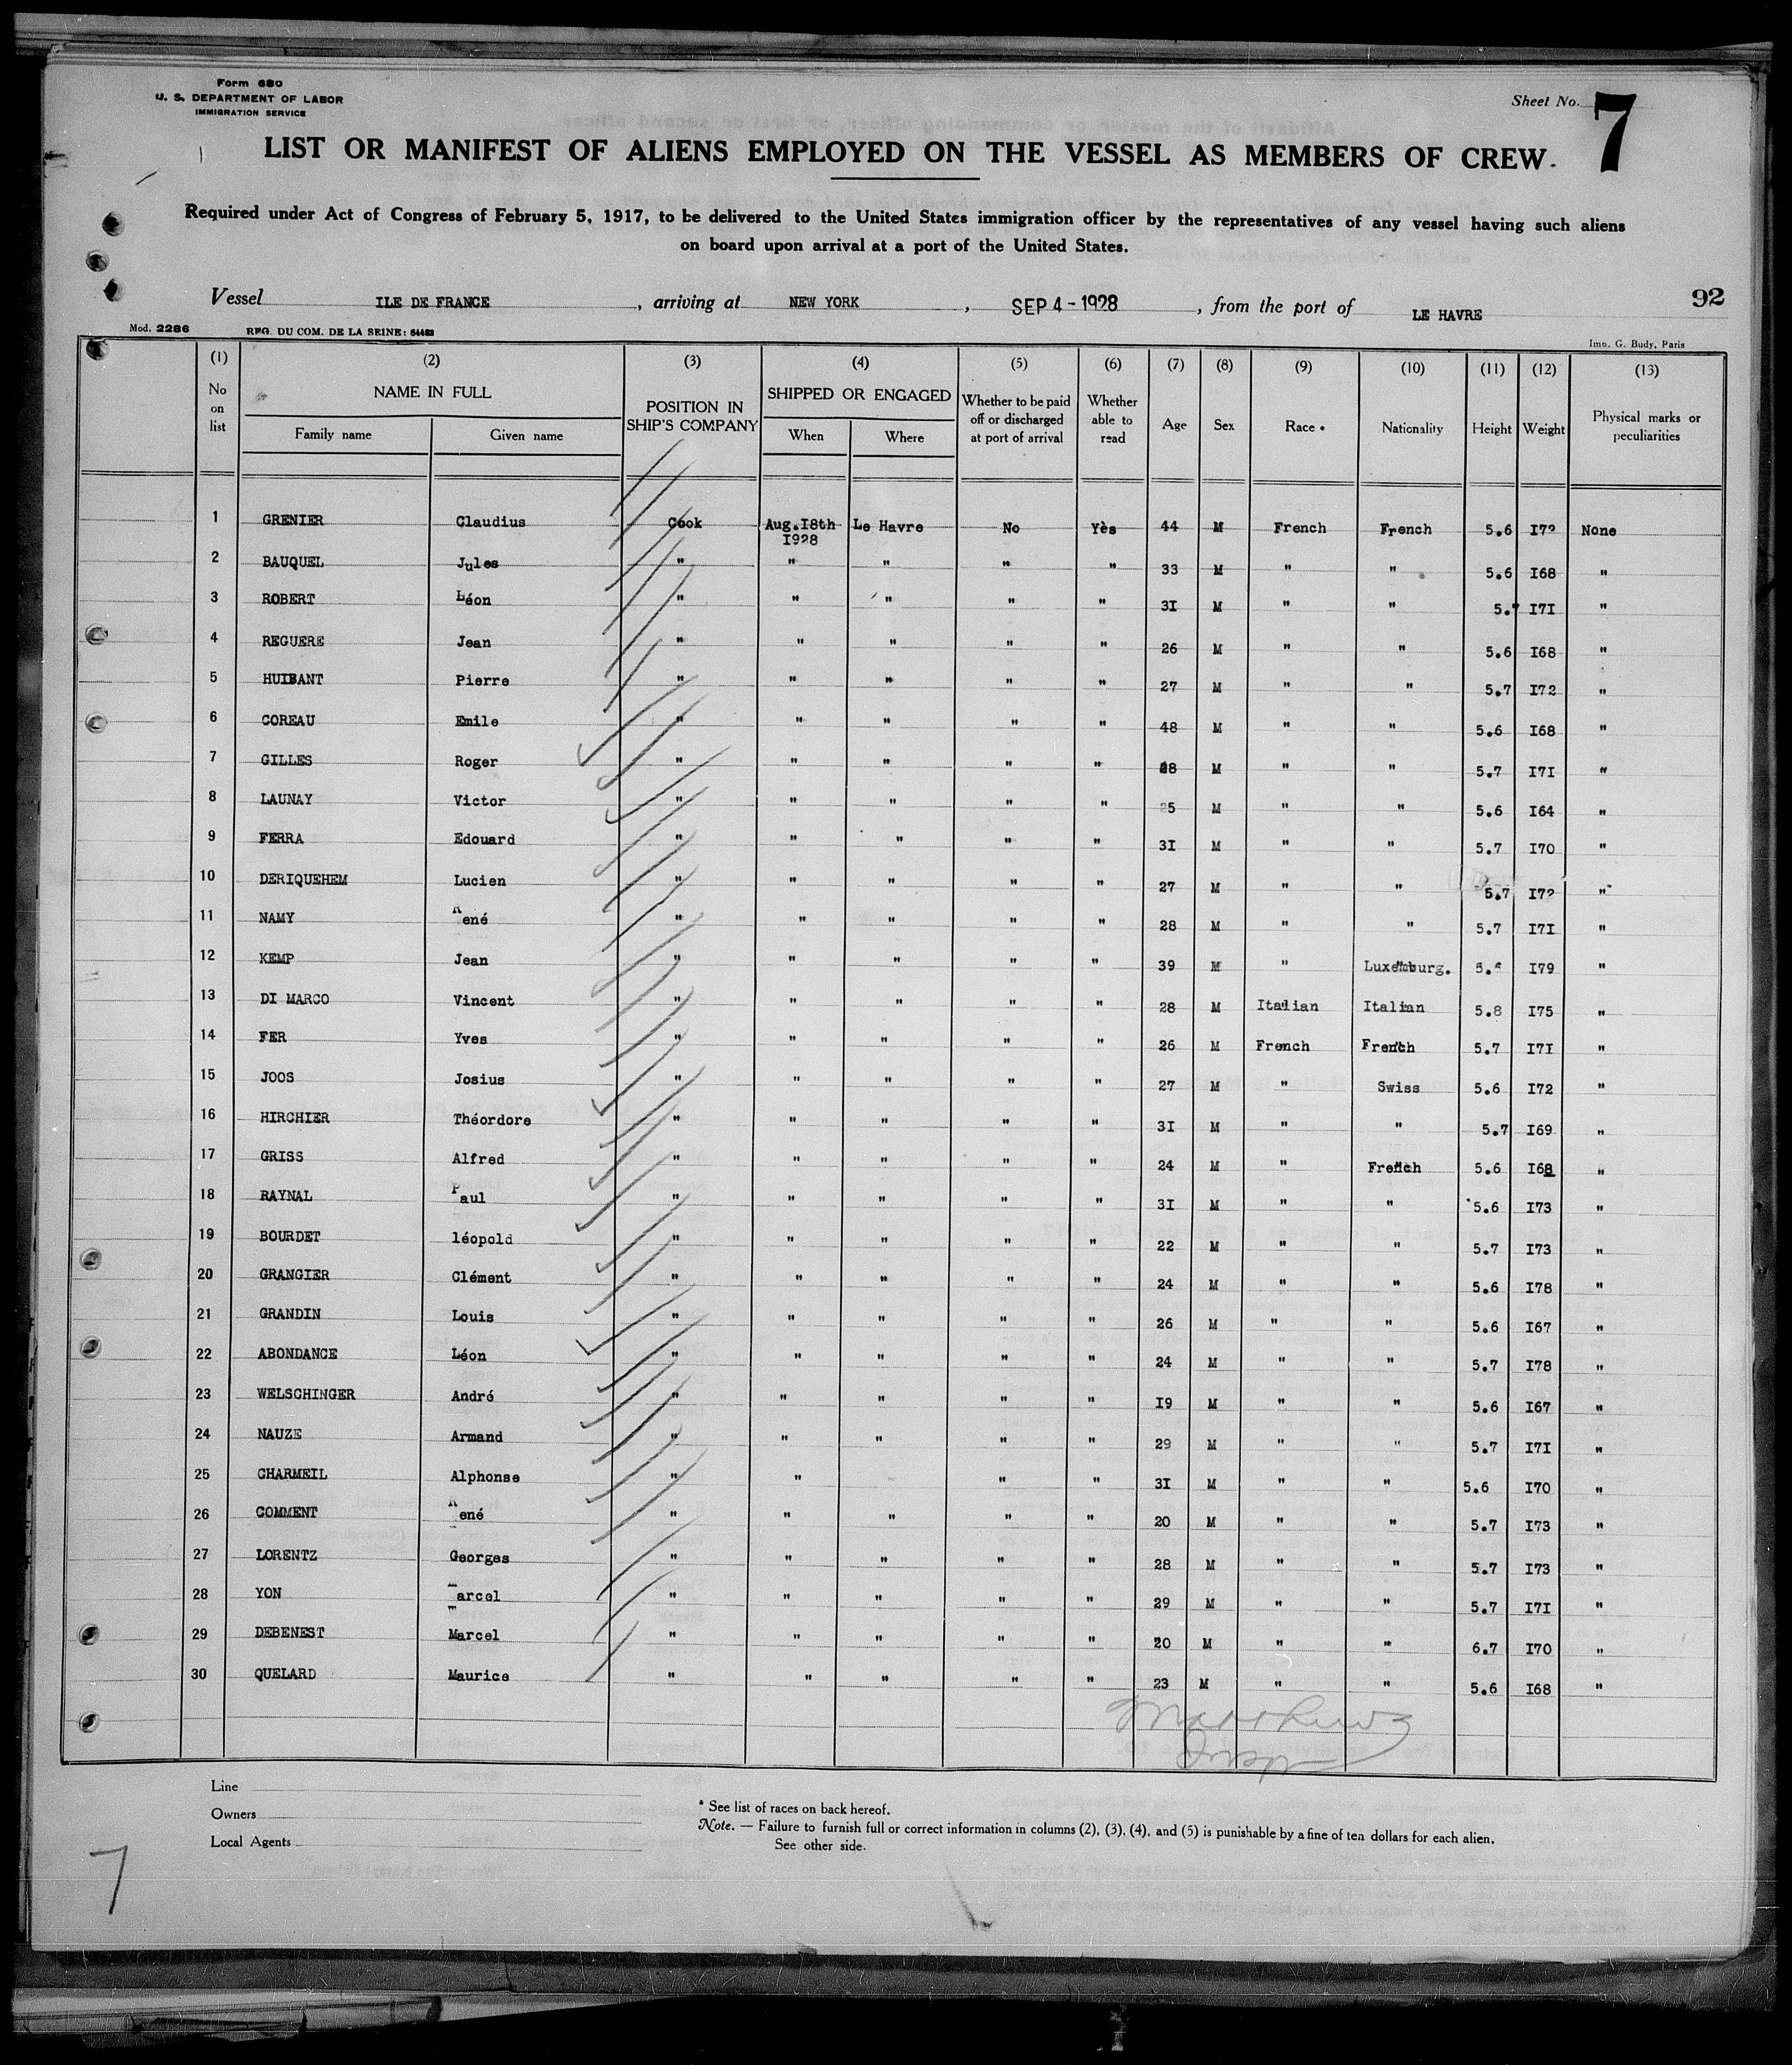 Form 680
U. S. DEPARTMENT OF LABOR
IMMIGRATION SERVICE
Sheet No. 7
LIST OR MANIFEST OF ALIENS EMPLOYED ON THE VESSEL AS MEMBERS OF CREW.
Required under Act of Congress of February 5, 1917, to be delivered to the United States immigration officer by the representatives of any vessel having such aliens
on board upon arrival at a port of the United States.
92
Vessel ILE DE FRANCE, arriving at NEW YORK, SEP 4-1928, from the port of LE HAVRE
Mod. 2286 REG. DU COM. DE LA SEINE: 64462 Imp. G. Budy, Paris
(1) (2) (3) (4) (5) (6) (7) (8) (9) (10) (11) (12) (13)
No on list NAME IN FULL Family name Given name POSITION IN SHIP'S COMPANY SHIPPED OR ENGAGED When Where Whether to be paid off or discharged at port of arrival Whether able to read Age Sex Race * Nationality Height Weight Physical marks or peculiarities
1 GRENIER Claudius Cook Aug.18th 1928 Le Havre No Yès 44 M French French 5.6 I72 None
2 BAUQUEL Jules " " " " " 33 M " " 5.6 I68 "
3 ROBERT Léon " " " " " 3I M " " 5.7 I7I "
4 REGUERE Jean " " " " " 26 M " " 5.6 I68 "
5 HUIBANT Pierre " " " " " 27 M " " 5.7 I72 "
6 COREAU Emile " " " " " 48 M " " 5.6 I68 "
7 GILLES Roger " " " " " 28 M " " 5.7 I7I "
8 LAUNAY Victor " " " " " 25 M " " 5.6 I64 "
9 FERRA Edouard " " " " " 3I M " " 5.7 I70 "
10 DERIQUEHEM Lucien " " " " " 27 M " " 5.7 I72 "
11 NAMY René " " " " " 28 M " " 5.7 I7I "
12 KEMP Jean " " " " " 39 M " Luxemburg. I79 "
13 DI MARCO Vincent " " " " " 28 M Italian Italian 5.8 I75 "
14 FER Yves " " " " " 26 M French French 5.7 I7I "
15 JOOS Josius " " " " " 27 M " Swiss 5.6 I72 "
16 HIRCHIER Théordore " " " " " 3I M " " 5.7 I69 "
17 GRISS Alfred " " " " " 24 M " French 5.6 I68 "
18 RAYNAL Paul " " " " " 3I M " " 5.6 I73 "
19 BOURDET léopold " " " " " 22 M " " 5.7 I73 "
20 GRANGIER Clément " " " " " 24 M " " 5.6 I78 "
21 GRANDIN Louis " " " " " 26 M " " 5.6 I67 "
22 ABONDANCE Léon " " " " " 24 M " " 5.7 I78 "
23 WELSCHINGER André " " " " " I9 M " " 5.6 I67 "
24 NAUZE Armand " " " " " 29 M " " 5.7 I7I "
25 CHARMEIL Alphonse " " " " 3I M " " 5.6 I70 "
26 COMMENT René " " " " " 20 M " " 5.7 I73 "
27 LORENTZ Georges " " " " " 28 M " " 5.7 I73 "
28 YON Marcel " " " " " 29 M " " 5.7 I7I "
29 DEBENEST Marcel " " " " " 20 M " " 6.7 I70 "
30 QUELARD Maurice " " " " " 23 M " " 5.6 I68 "
Matthews
Insp
Line
Owners
Local Agents
* See list of races on back hereof.
Note. — Failure to furnish full or correct information in columns (2), (3), (4), and (5) is punishable by a fine of ten dollars for each alien.
See other side.
7